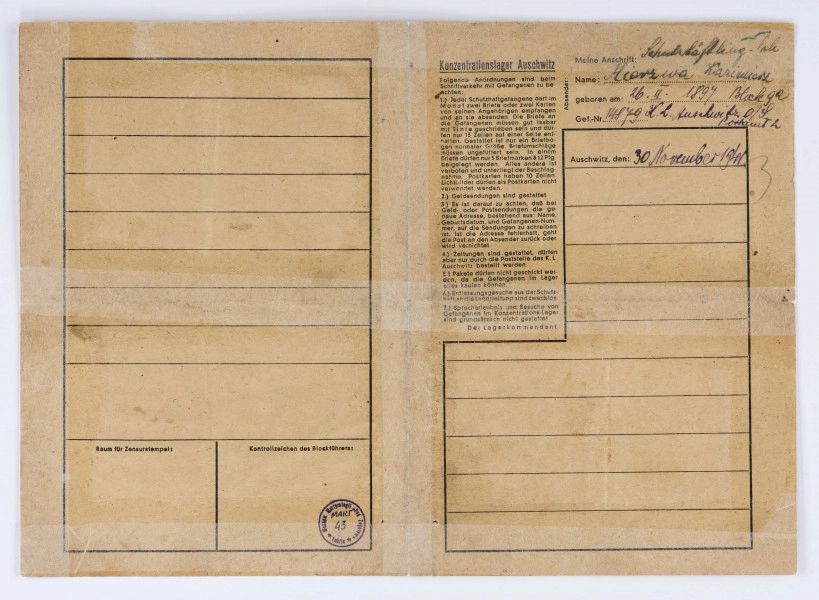 Raum für Zensurstempel:
Kontrollzeichen des Blockführers:
MART
43
Konzentrationslager Auschwitz
Folgende Anordnungen sind beim
Schriftverkehr mit Gefangenen zu be-
achten:
1.) Jeder Schutzhaftgefangene darf im
Monat zwei Briefe oder zwei Karten
von seinen Angehörigen empfangen
und an sie absenden. Die Briefe an
die Gefangenen müssen gut lesbar
mit Tinte geschrieben sein und dür-
fen nur 15 Zeilen auf einer Seite ent-
halten. Gestattet ist nur ein Briefbo-
gen normaler Größe. Briefumschläge
müssen ungefüttert sein. In einem
Briefe dürfen nur 5 Briefmarken à 12 Pfg.
beigelegt werden. Alles andere ist
verboten und unterliegt der Beschlag-
nahme. Postkarten haben 10 Zeilen.
Lichtbilder dürfen als Postkarten nicht
verwendet werden.
2.) Geldsendungen sind gestattet.
3.) Es ist darauf zu achten, daß bei
Geld- oder Postsendungen die ge-
naue Adresse, bestehend aus: Name,
Geburtsdatum, und Gefangenen-Num-
mer, auf die Sendungen zu schreiben
ist. Ist die Adresse fehlerhaft, geht
die Post an den Absender zurück oder
wird vernichtet.
4.) Zeitungen sind gestattet, dürfen
aber nur durch die Poststelle des K. L.
Auschwitz bestellt werden.
5.) Pakete dürfen nicht geschickt wer-
den, da die Gefangenen im Lager
alles kaufen können.
6.) Entlassungsgesuche aus der Schutz-
haft an die Lagerleitung sind zwecklos.
7.) Sprecherlaubnis und Besuche von
Gefangenen im Konzentrations-Lager
sind grundsätzlich nicht gestattet.
Der Lagerkommandant
Absender:
Meine Anschrift: Schutzhäftling
Name: Kazimierz
geboren am: 26. II. 1897 Block
Gef.-Nr. 14879 K.L. Auschwitz O/S
Postamt 2
Auschwitz, den: 30 November 1941